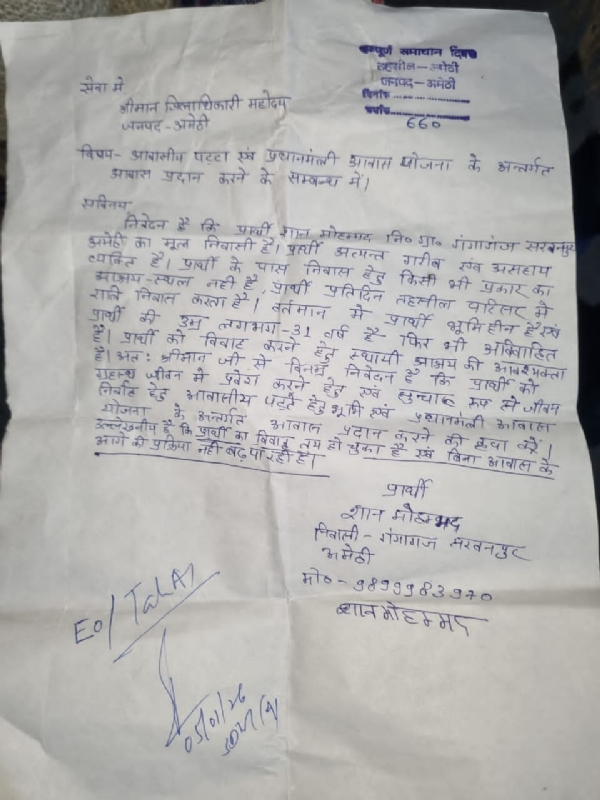 सम्पूर्ण समाधान दिवस
तहसील-अमेठी
जनपद-अमेठी
दिनांक ..............
क्रमांक ..............
660
सेवा में
श्रीमान जिलाधिकारी महोदय
जनपद-अमेठी
विषय- आवासीय पट्टा एवं प्रधानमंत्री आवास योजना के अन्तर्गत
आवास प्रदान करने के सम्बन्ध में।
सविनय
निवेदन है कि प्रार्थी शान मोहम्मद नि० ग्रा० गंगागंज सरवनपुर
अमेठी का मूल निवासी है। प्रार्थी अत्यन्त गरीब एवं असहाय
व्यक्ति है। प्रार्थी के पास निवास हेतु किसी भी प्रकार का
आश्रय-स्थल नहीं है प्रार्थी प्रतिदिन तहसील परिसर में
रात्रि निवास करता है। वर्तमान में प्रार्थी भूमिहीन है एवं
प्रार्थी की उम्र लगभग-31 वर्ष है फिर भी अविवाहित
है। प्रार्थी को विवाह करने हेतु स्थायी आश्रय की आवश्यकता
है। अतः श्रीमान जी से विनम्र निवेदन है कि प्रार्थी को
गृहस्थ जीवन में प्रवेश करने हेतु एवं रूप से जीवन
निर्वाह हेतु आवासीय पट्टे हेतु भूमि एवं प्रधानमंत्री आवास
योजना के अन्तर्गत आवास प्रदान करने की कृपा करें।
उल्लेखनीय है कि प्रार्थी का विवाह तय हो चुका है एवं बिना आवास के
आगे की प्रक्रिया नहीं बढ़ पा रही है।
प्रार्थी
शान मोहम्मद
निवासी- गंगागंज सरवनपुर
अमेठी
मो०-9899983970
शान मोहम्मद
EO/
05/01/26